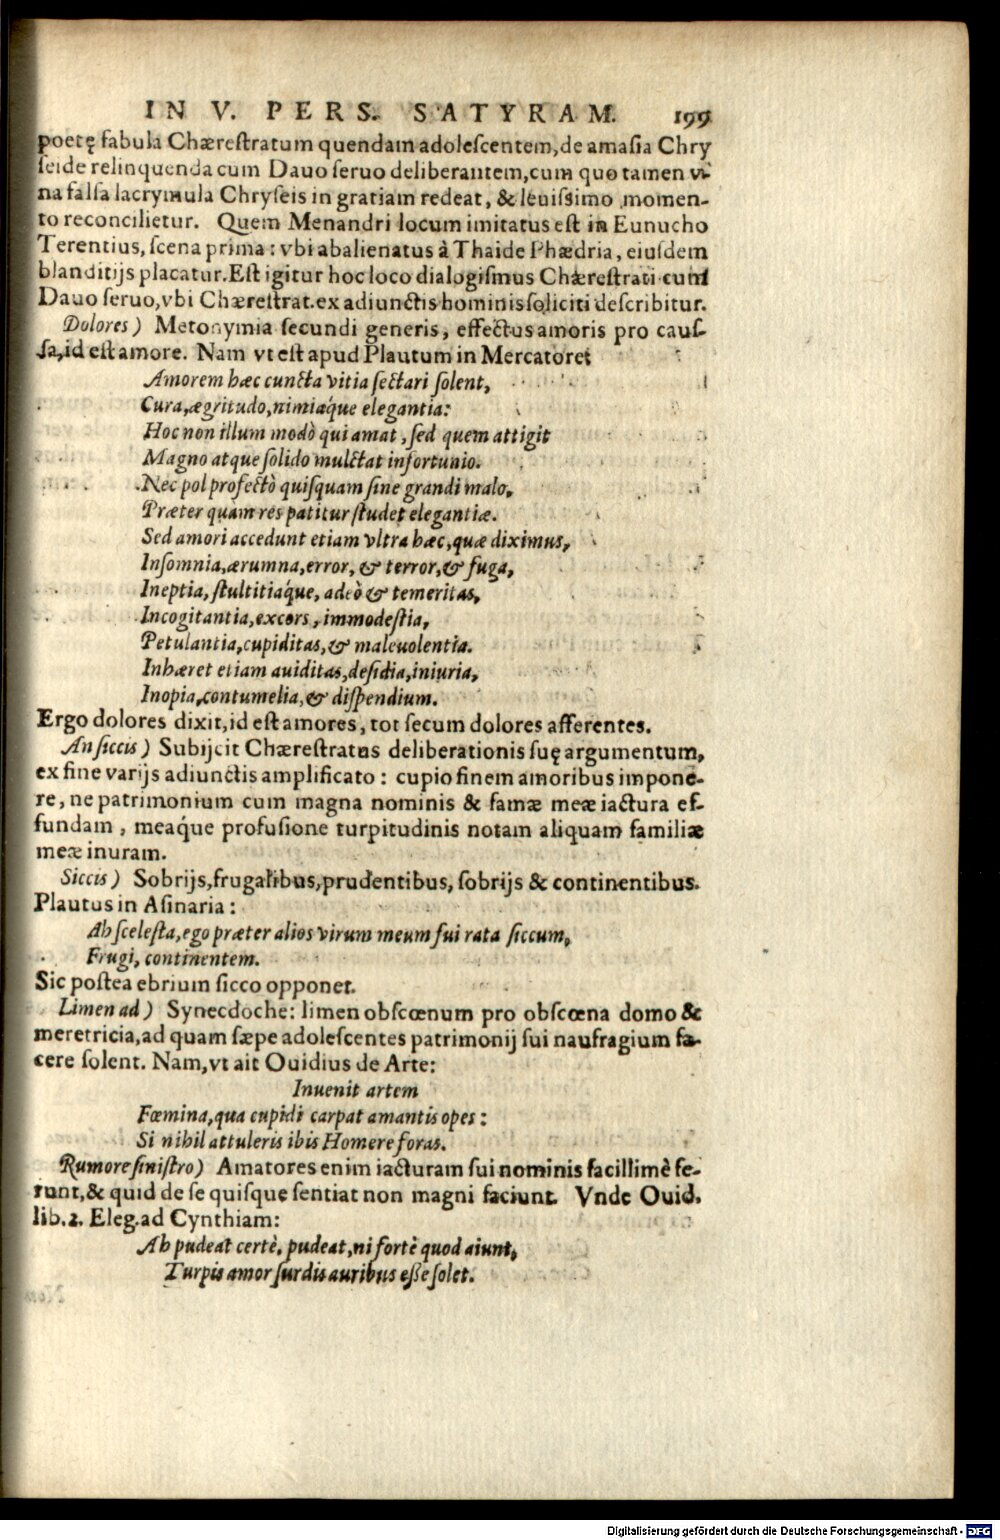 IN V. PERS. SATYRAM. 199
poetę fabula Chærestratum quendam adolescentem, de amasia Chry
seide relinquenda cum Dauo seruo deliberantem, cum quo tamen vi
na falsa lacrymula Chryseis in gratiam redeat, & leuissimo momen-
to reconcilietur. Quem Menandri locum imitatus est in Eunucho
Terentius, scena prima: vbi abalienatus à Thaide Phædria, eiusdem
blanditijs placatur. Est igitur hoc loco dialogismus Chærestrati cum
Dauo seruo, vbi Chærestrat. ex adiunctis hominis soliciti describitur.
Dolores) Metonymia secundi generis, effectus amoris pro caus-
sa, id est amore. Nam vt est apud Plautum in Mercatore:
Amorem hæc cuncta vitia sectari solent,
Cura, ægritudo, nimiáque elegantia:
Hoc non illum modò qui amat, sed quem attigit
Magno atque solido mulctat infortunio.
Nec pol profectò quisquam sine grandi malo,
Præter quam res patitur studet elegantiæ.
Sed amori accedunt etiam vltra hæc, quæ diximus,
Insomnia, ærumna, error, & terror, & fuga,
Ineptia, stultitiáque, adeò & temeritas,
Incogitantia, excors, immodestia,
Petulantia, cupiditas, & maleuolentia.
Inhæret etiam auiditas, desidia, iniuria,
Inopia, contumelia, & dispendium.
Ergo dolores dixit, id est amores, tot secum dolores afferentes.
An siccis) Subijcit Chærestratus deliberationis suę argumentum,
ex fine varijs adiunctis amplificato: cupio finem amoribus impone-
re, ne patrimonium cum magna nominis & famæ meæ iactura ef-
fundam, meáque profusione turpitudinis notam aliquam familiæ
meæ inuram.
Siccis) Sobrijs, frugalibus, prudentibus, sobrijs & continentibus.
Plautus in Asinaria:
Ah scelesta, ego præter alios virum meum fui rata siccum,
Frugi, continentem.
Sic postea ebrium sicco opponet.
Limen ad) Synecdoche: limen obscœnum pro obscœna domo &
meretricia, ad quam sæpe adolescentes patrimonij sui naufragium fa-
cere solent. Nam, vt ait Ouidius de Arte:
Inuenit artem
Fœmina, qua cupidi carpat amantis opes:
Si nihil attuleris ibis Homere foras.
Rumore sinistro) Amatores enim iacturam sui nominis facillimè fe-
runt, & quid de se quisque sentiat non magni faciunt. Vnde Ouid.
lib. 2. Eleg. ad Cynthiam:
Ah pudeat certè, pudeat, ni fortè quod aiunt,
Turpis amor surdis auribus esse solet.
Digitalisierung gefördert durch die Deutsche Forschungsgemeinschaft - DFG